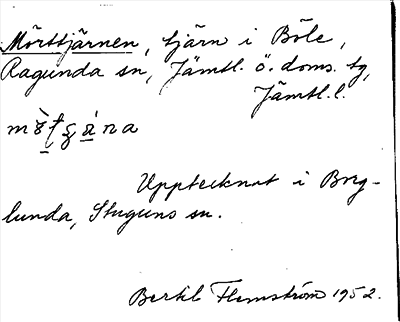 Mörttjärnen, tjärn i Böle,
Ragunda sn, Jämtl. ö. doms. tg,
Jämtl. l.
Upptecknat i Borg-
lunda, Stuguns sn.
Bertil Flemström 1952.